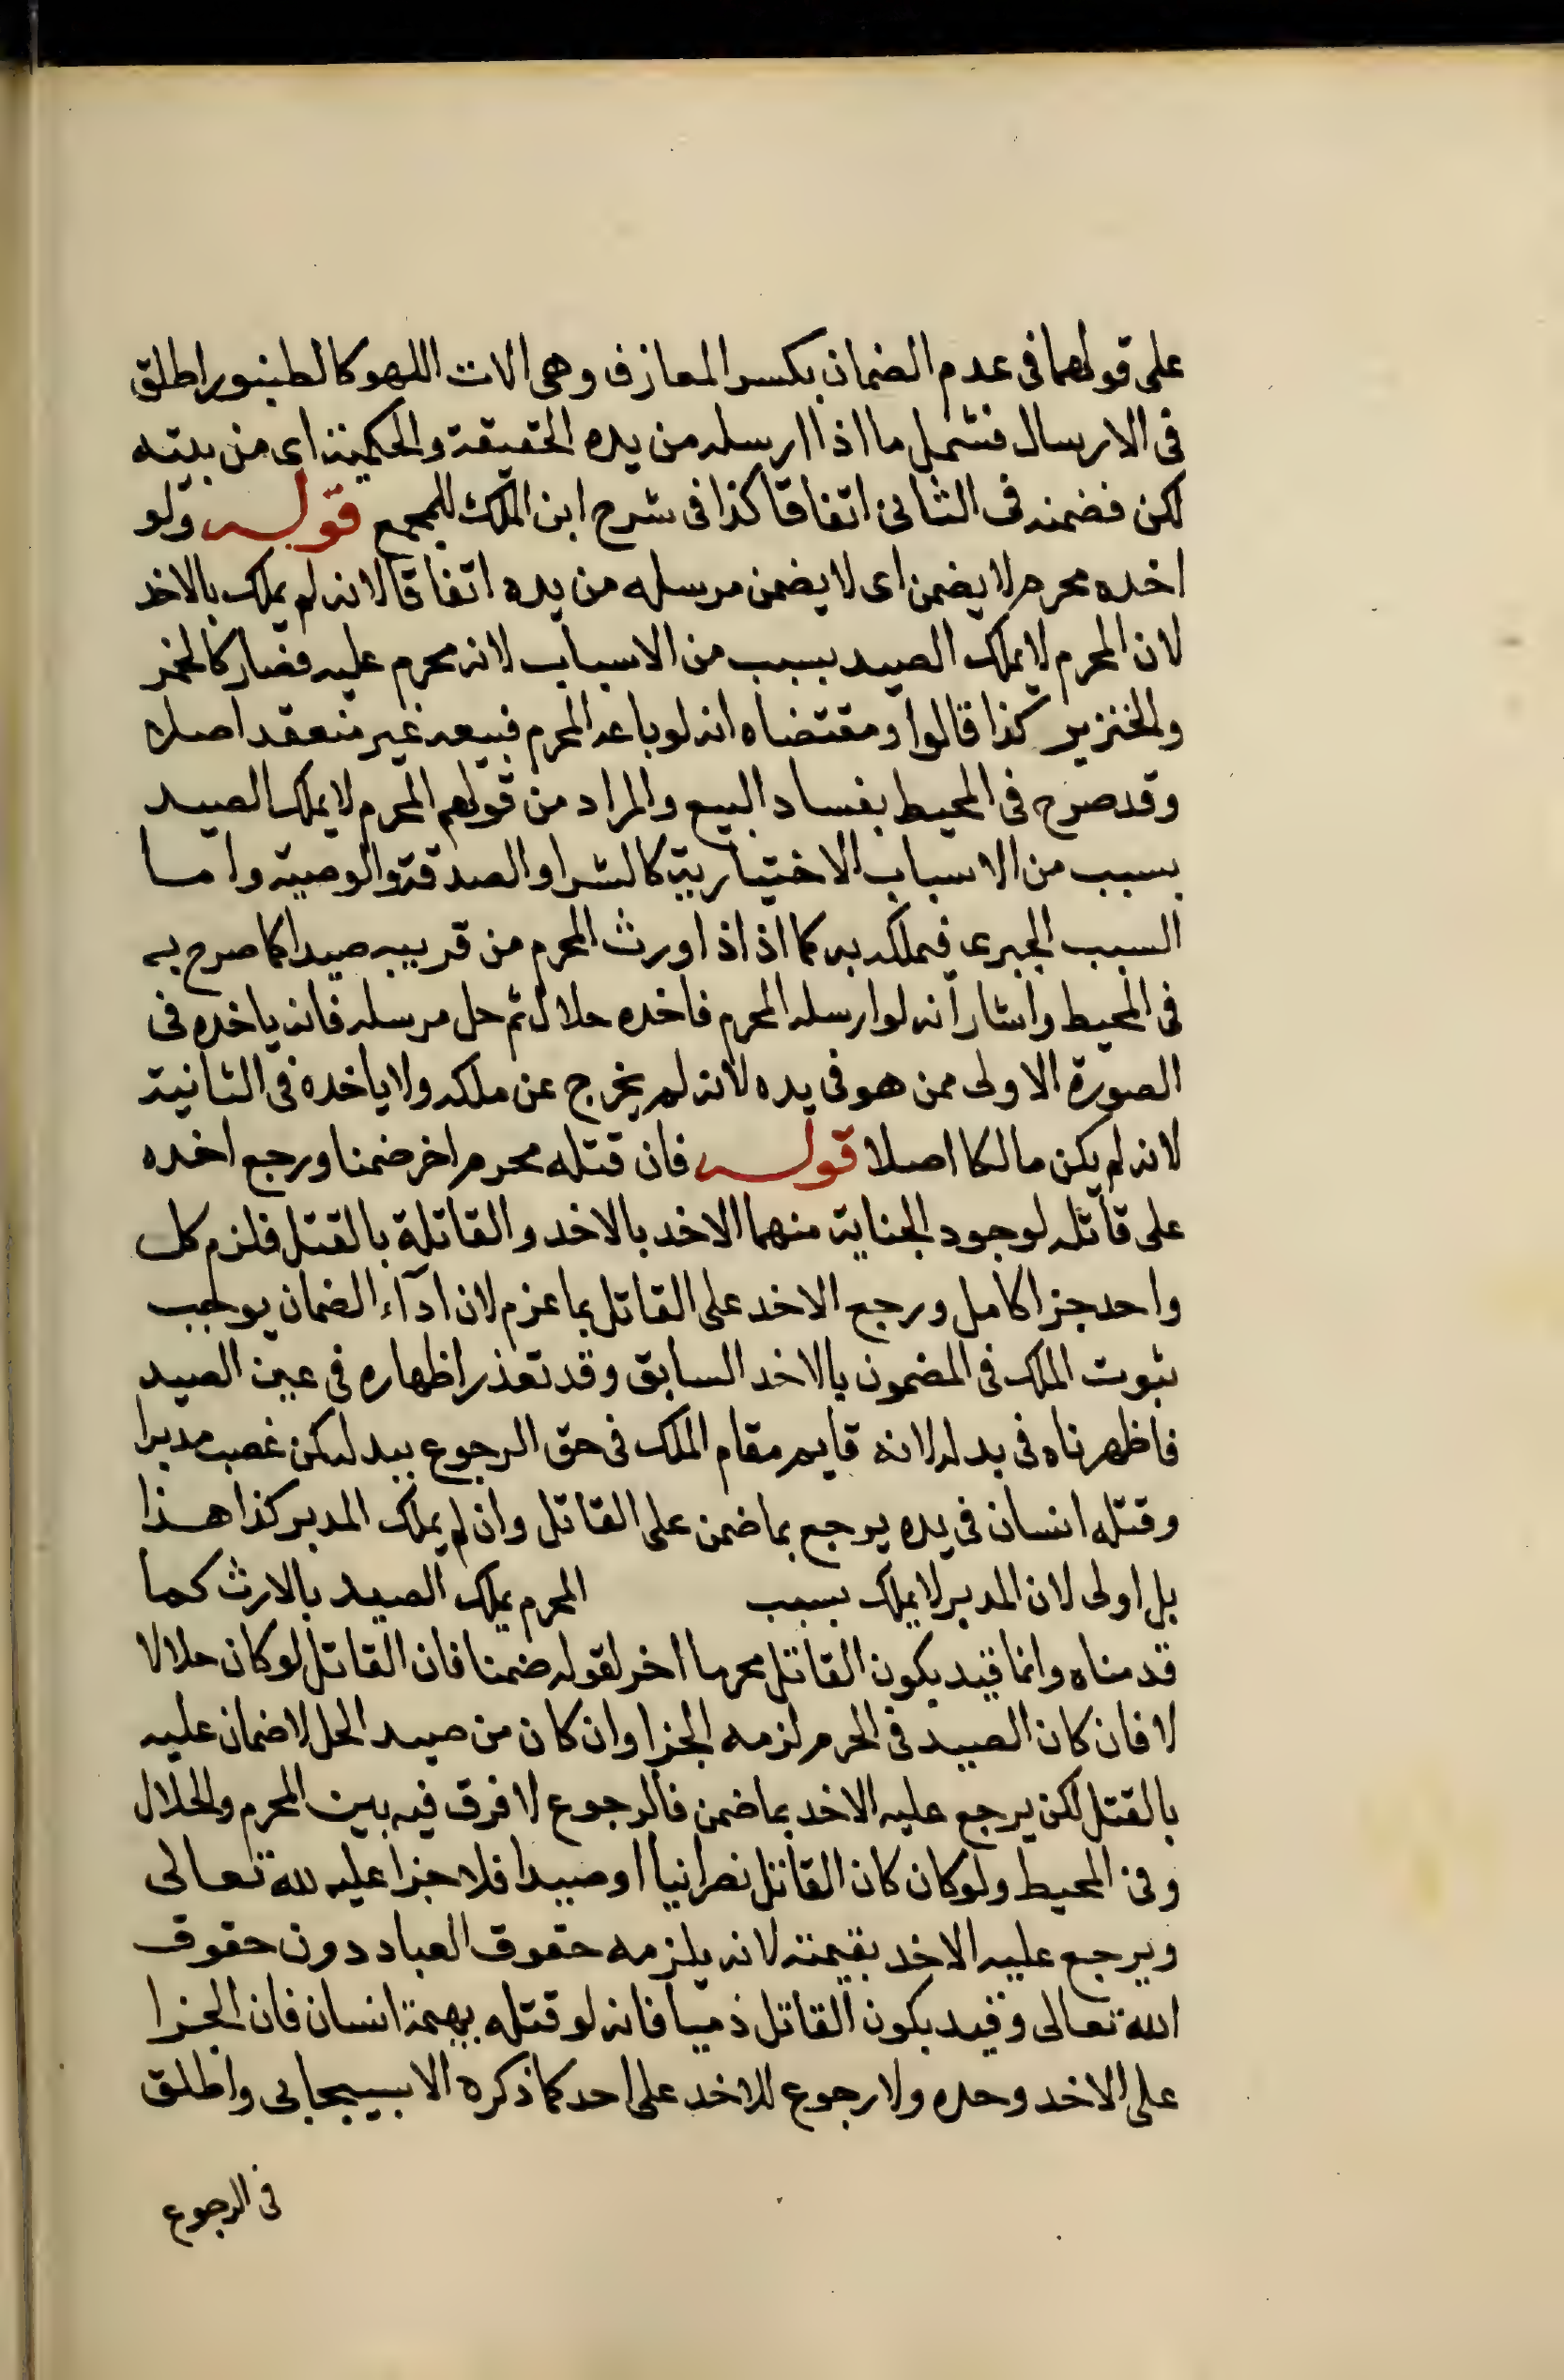 على قولهما فى عدم الضمان بكسر المعازف وهى الات اللهو كالطنبور اطلق
فى الارسال فشمل ما اذا ارسله من يده الحقيقة والحكمية اى من بيته
لكن فضمنه فى الثانى اتفاقا كذا فى شرح ابن الملك للمجمع قوله ولو
اخده محرم لا يضمن اى لا يضمن مرسله من يده اتفاقا لانه لم يملك بالاخد
لان المحرم لا يملك الصيد بسبب من الاسباب لانه محرم عليه فصار كالخمر
والخنزير كذا قالوا ومقتضاه انه لو باعه المحرم فبيعه غير منعقد اصلا
وقد صرح فى المحيط بفساد البيع والمراد من قولهم المحرم لا يملك الصيد
بسبب من الاسباب الاختيارية كالشرا والصدقة والوصية واما
السبب الجبرى فيملكه به كما اذ اذا ورث المحرم من قريبه صيدا كما صرح به
فى المحيط واشار انه لو ارسله المحرم فاخده حلال ثم حل مرسله فانه ياخده فى
الصورة الاولى ممن هو فى يده لانه لم يخرج عن ملكه ولا ياخده فى الثانية
لانه لم يكن مالكا اصلا قوله فان قتله محرم اخر ضمنا ورجع اخده
على قاتله لوجود الجناية منهما الاخد بالاخد والقاتلة بالقتل فلزم كل
واحد جزا كامل ورجع الاخد على القاتل بما غرم لان ادآء الضمان يوجب
ثبوت الملك فى المضمون بالاخد السابق وقد تعذر اظهاره فى عين الصيد
فاظهرناه فى بدله لانه قايم مقام الملك فى حق الرجوع ببدله كمن غصب مدبرا
وقتله انسان فى يده يرجع بما ضمن على القاتل وان لم يملك المدبر كذا هذا
بل اولى لان المدبر لا يملك بسبب المحرم يملك الصيد بالارث كما
قدمناه وانما قيد بكون القاتل محرما اخر لقوله ضمنا فان القاتل لو كان حلالا
لا فان كان الصيد فى الحرم لزمه الجزا وان كان من صيد الحل لا ضمان عليه
بالقتل لكن يرجع عليه الاخد بما ضمن فالرجوع لا فرق فيه بين المحرم والحلال
وفى المحيط ولو كان كان القاتل نصرانيا او صبيا فلا جزا عليه لله تعالى
ويرجع عليه الاخد بقيمته لانه يلزمه حقوق العباد دون حقوق
الله تعالى وقيد بكون القاتل ذميا فانه لو قتله بهيمة انسان فان الجزا
على الاخد وحده ولا رجوع للاخد على احد كما ذكره الاسبيجابى واطلق
فى الرجوع